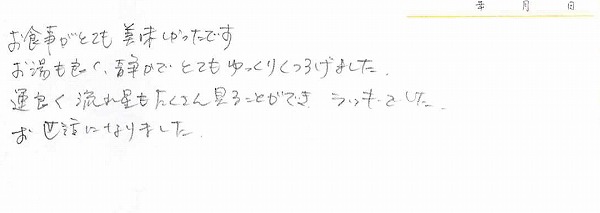 年 月 日
お食事がとても美味しかったです
お湯も良く、静かで とてもゆっくりくつろげました.
運良く 流れ星もたくさん見ることができ ラッキーでした.
お世話になりました.